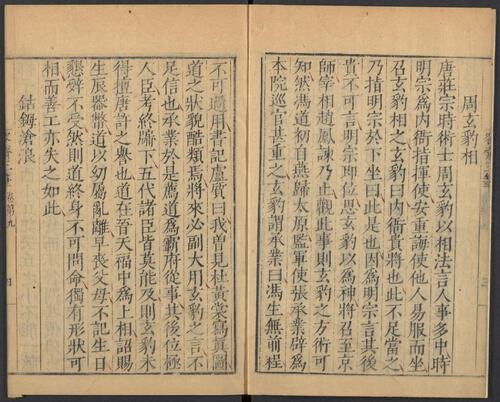 周玄豹相
唐莊宗時術士周玄豹以相法言人事多中時
明宗爲内衙指揮使安重誨使他人易服而坐
召玄豹相之玄豹曰内衙貴將也此不足當之
乃指明宗於下坐曰此是也因爲明宗言其後
貴不可言明宗即位思玄豹以爲神將召至京
師宰相趙鳳諫乃止觀此事則玄豹之方術可
知然馮道初自燕歸太原監軍使張承業辟爲
本院巡官甚重之玄豹謂承業曰馮生無前程
不可過用書記盧質曰我曽見杜黃裳寫真圖
道之狀貌酷類焉將來必副大用玄豹之言不
足信也承業於是薦道爲霸府從事其後位極
人臣考終牖下五代諸臣皆莫能及則玄豹未
得擅唐許之譽也道在晉天福中爲上相詔賜
生辰器幣道以幼屬亂離早喪父母不記生日
懇辭不受然則道終身不可問命獨有形狀可
相而善工亦失之如此
鈷鉧滄浪